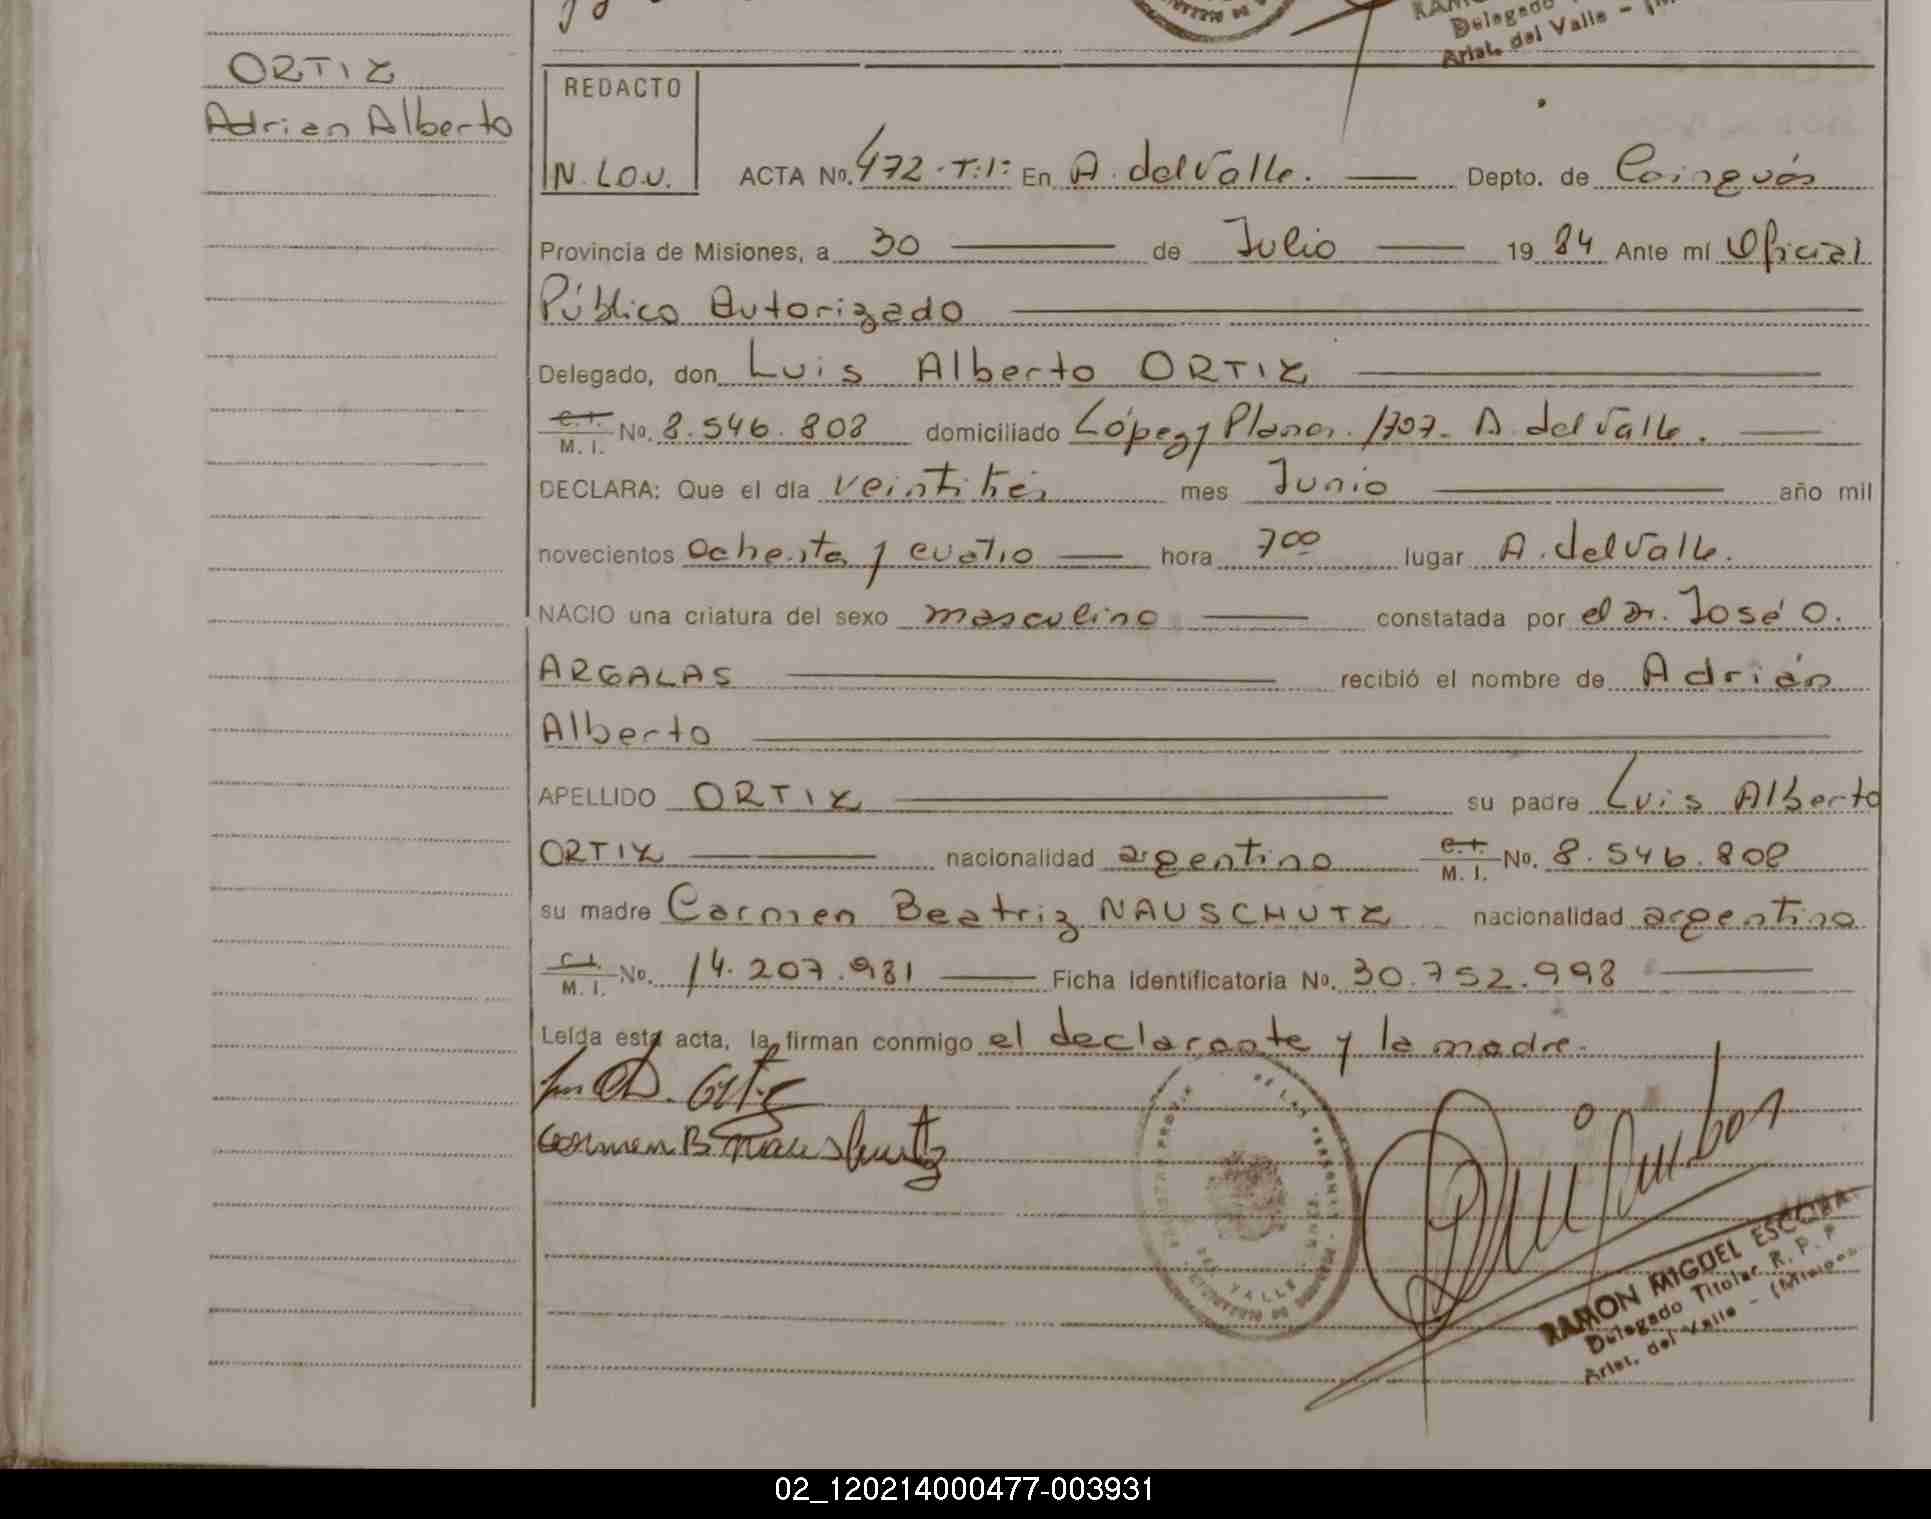 Delegado
Arist. del Valle -
ORTIZ
Adrian Alberto
REDACTO
N. LOV.
ACTA No. 472.T.1: En A. del Valle. Depto. de Cainguás
Provincia de Misiones, a 30 de Julio 1984 Ante mí Oficial
Público Autorizado
Delegado, don Luis Alberto ORTIZ
C.I. M. I. No. 8.546.808 domiciliado López y Planes. 1707. A. del Valle.
DECLARA: Que el día veintitrés mes Junio año mil
novecientos ochenta y cuatro hora 7 00 lugar A. del Valle.
NACIO una criatura del sexo masculino constatada por el Dr. José O.
ARGALAS recibió el nombre de Adrián
Alberto
APELLIDO ORTIZ su padre Luis Alberto
ORTIZ nacionalidad argentino C.I. M. I. No. 8.546.808
su madre Carmen Beatriz NAUSCHUTZ nacionalidad argentina
C.I. M. I. No. 14.207.981 Ficha Identificatoria No. 30.752.998
Leída esta acta, la firman conmigo el declarante y la madre.
Carmen B Nauschutz
DE LAS PERSONAS
DEL VALLE
RAMON MIGUEL ESCOBAR
Delegado Titular R. P. P.
Arist. del Valle - (Misiones
02_120214000477-003931